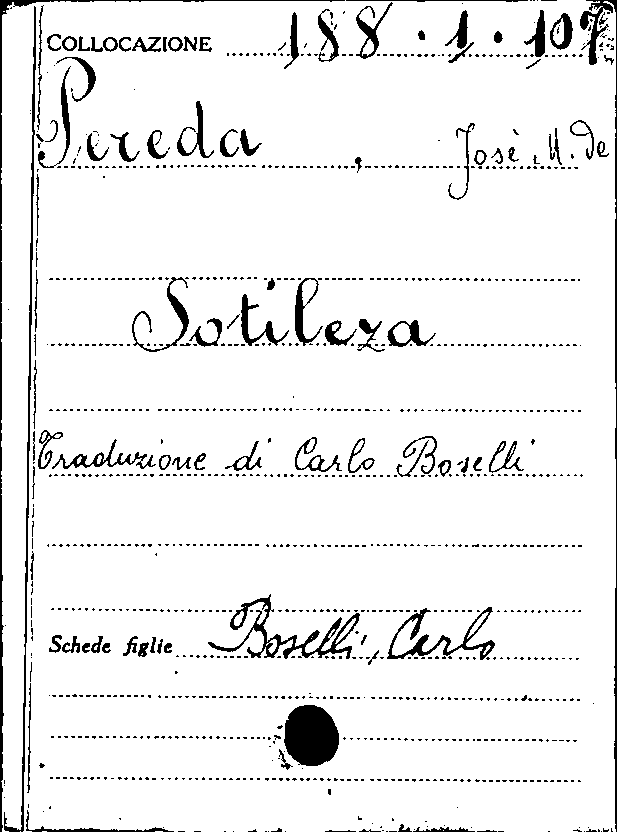 COLLOCAZIONE 188.1.107
Pereda, Josè M. de
Sotileza
Traduzione di Carlo Boselli
Schede figlie Boselli, Carlo